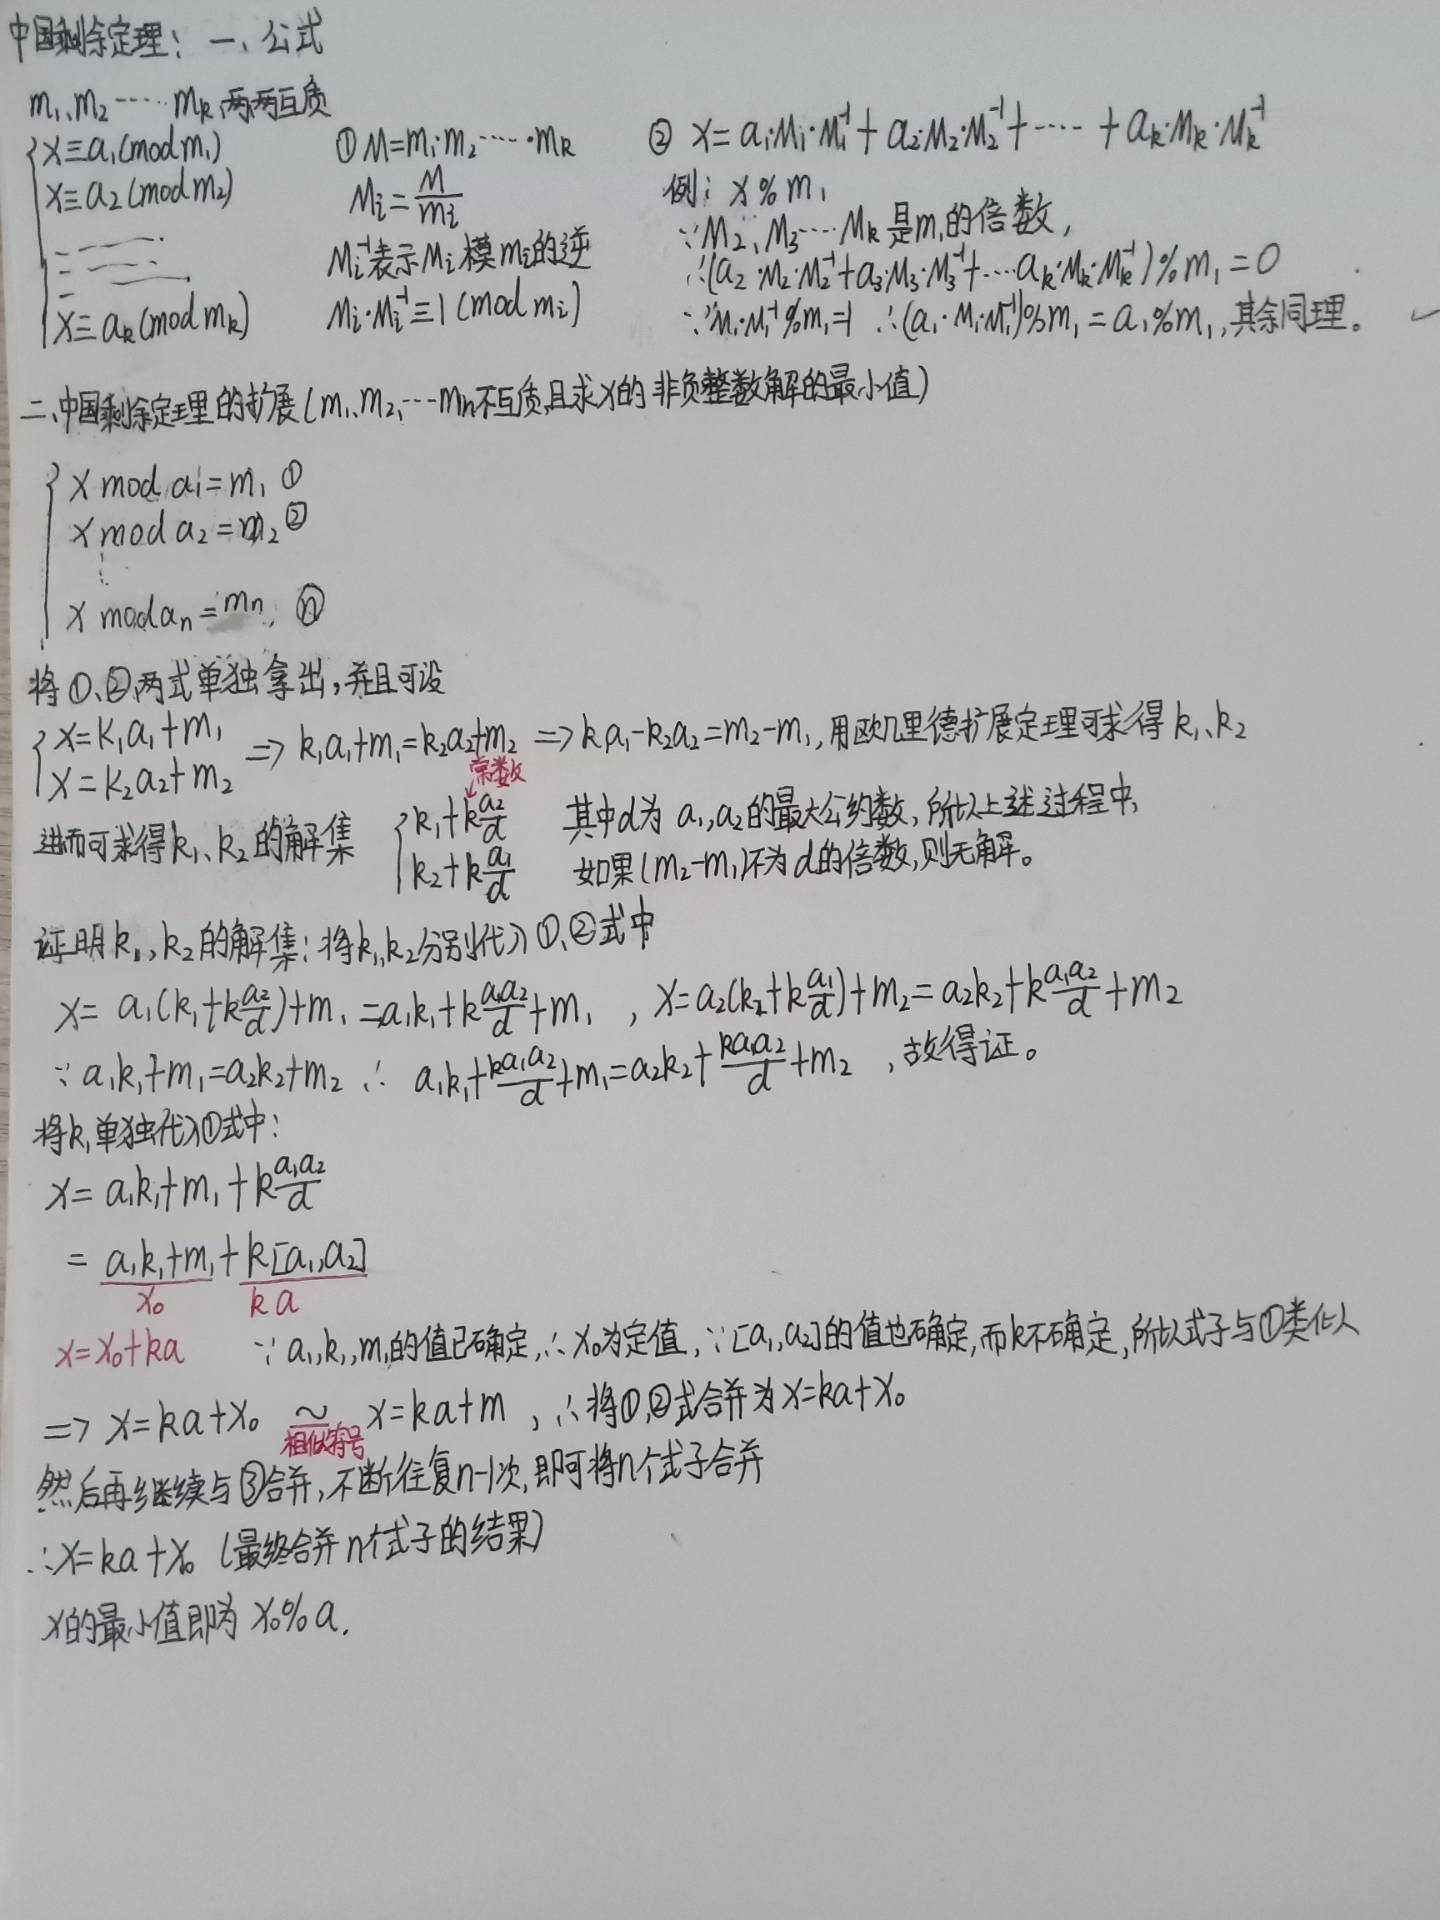 中国剩余定理: 一、公式
m₁、m₂……mₖ两两互质
x≡a₁(mod m₁) ①M=m₁·m₂·…·mₖ ② x=a₁·M₁·M₁⁻¹+a₂·M₂·M₂⁻¹+……+aₖ·Mₖ·Mₖ⁻¹
x≡a₂(mod m₂) Mᵢ=M/mᵢ 例: x%m₁
∵M₂、M₃……Mₖ是m₁的倍数,
Mᵢ⁻¹表示Mᵢ模mᵢ的逆 ∴(a₂·M₂·M₂⁻¹+a₃·M₃·M₃⁻¹+…aₖ·Mₖ·Mₖ⁻¹)%m₁=0
x≡aₖ(mod mₖ) Mᵢ·Mᵢ⁻¹≡1(mod mᵢ) ∵M₁·M₁⁻¹%m₁=1 ∴(a₁·M₁·M₁⁻¹)%m₁=a₁%m₁,其余同理。
二、中国剩余定理的扩展(m₁、m₂,…mn不互质,且求x的非负整数解的最小值)
x mod a₁=m₁ ①
x mod a₂=m₂ ②
⋮
x mod aₙ=mₙ, ⓝ
将①、②两式单独拿出,并且可设
x=k₁a₁+m₁ ⇒k₁a₁+m₁=k₂a₂+m₂ ⇒k₁a₁-k₂a₂=m₂-m₁,用欧几里德扩展定理可求得k₁、k₂
x=k₂a₂+m₂
常数
进而可求得k₁、k₂的解集 k₁+k a₂/d 其中d为a₁,a₂的最大公约数,所以上述过程中,
k₂+k a₁/d 如果(m₂-m₁)不为d的倍数,则无解。
证明k₁,k₂的解集:将k₁,k₂分别代入①、②式中
x=a₁(k₁+k a₂/d)+m₁=a₁k₁+k a₁a₂/d+m₁,x=a₂(k₂+k a₁/d)+m₂=a₂k₂+k a₁a₂/d+m₂
∵a₁k₁+m₁=a₂k₂+m₂ ∴ a₁k₁+ka₁a₂/d+m₁=a₂k₂+ka₁a₂/d+m₂ ,故得证。
将k₁单独代入①式中:
x=a₁k₁+m₁+k a₁a₂/d
=a₁k₁+m₁+k[a₁,a₂]
x₀ ka
x=x₀+ka ∵a₁,k₁,m₁的值已确定,∴x₀为定值,∵[a₁,a₂]的值也确定,而k不确定,所以式子与①类似
⇒x=ka+x₀ ~ x=ka+m,∴将①,②式合并为x=ka+x₀
相似符号
然后再继续与③合并,不断往复n-1次,即可将n个式子合并
∴x=ka+x₀(最终合并n个式子的结果)
x的最小值即为x₀%a.